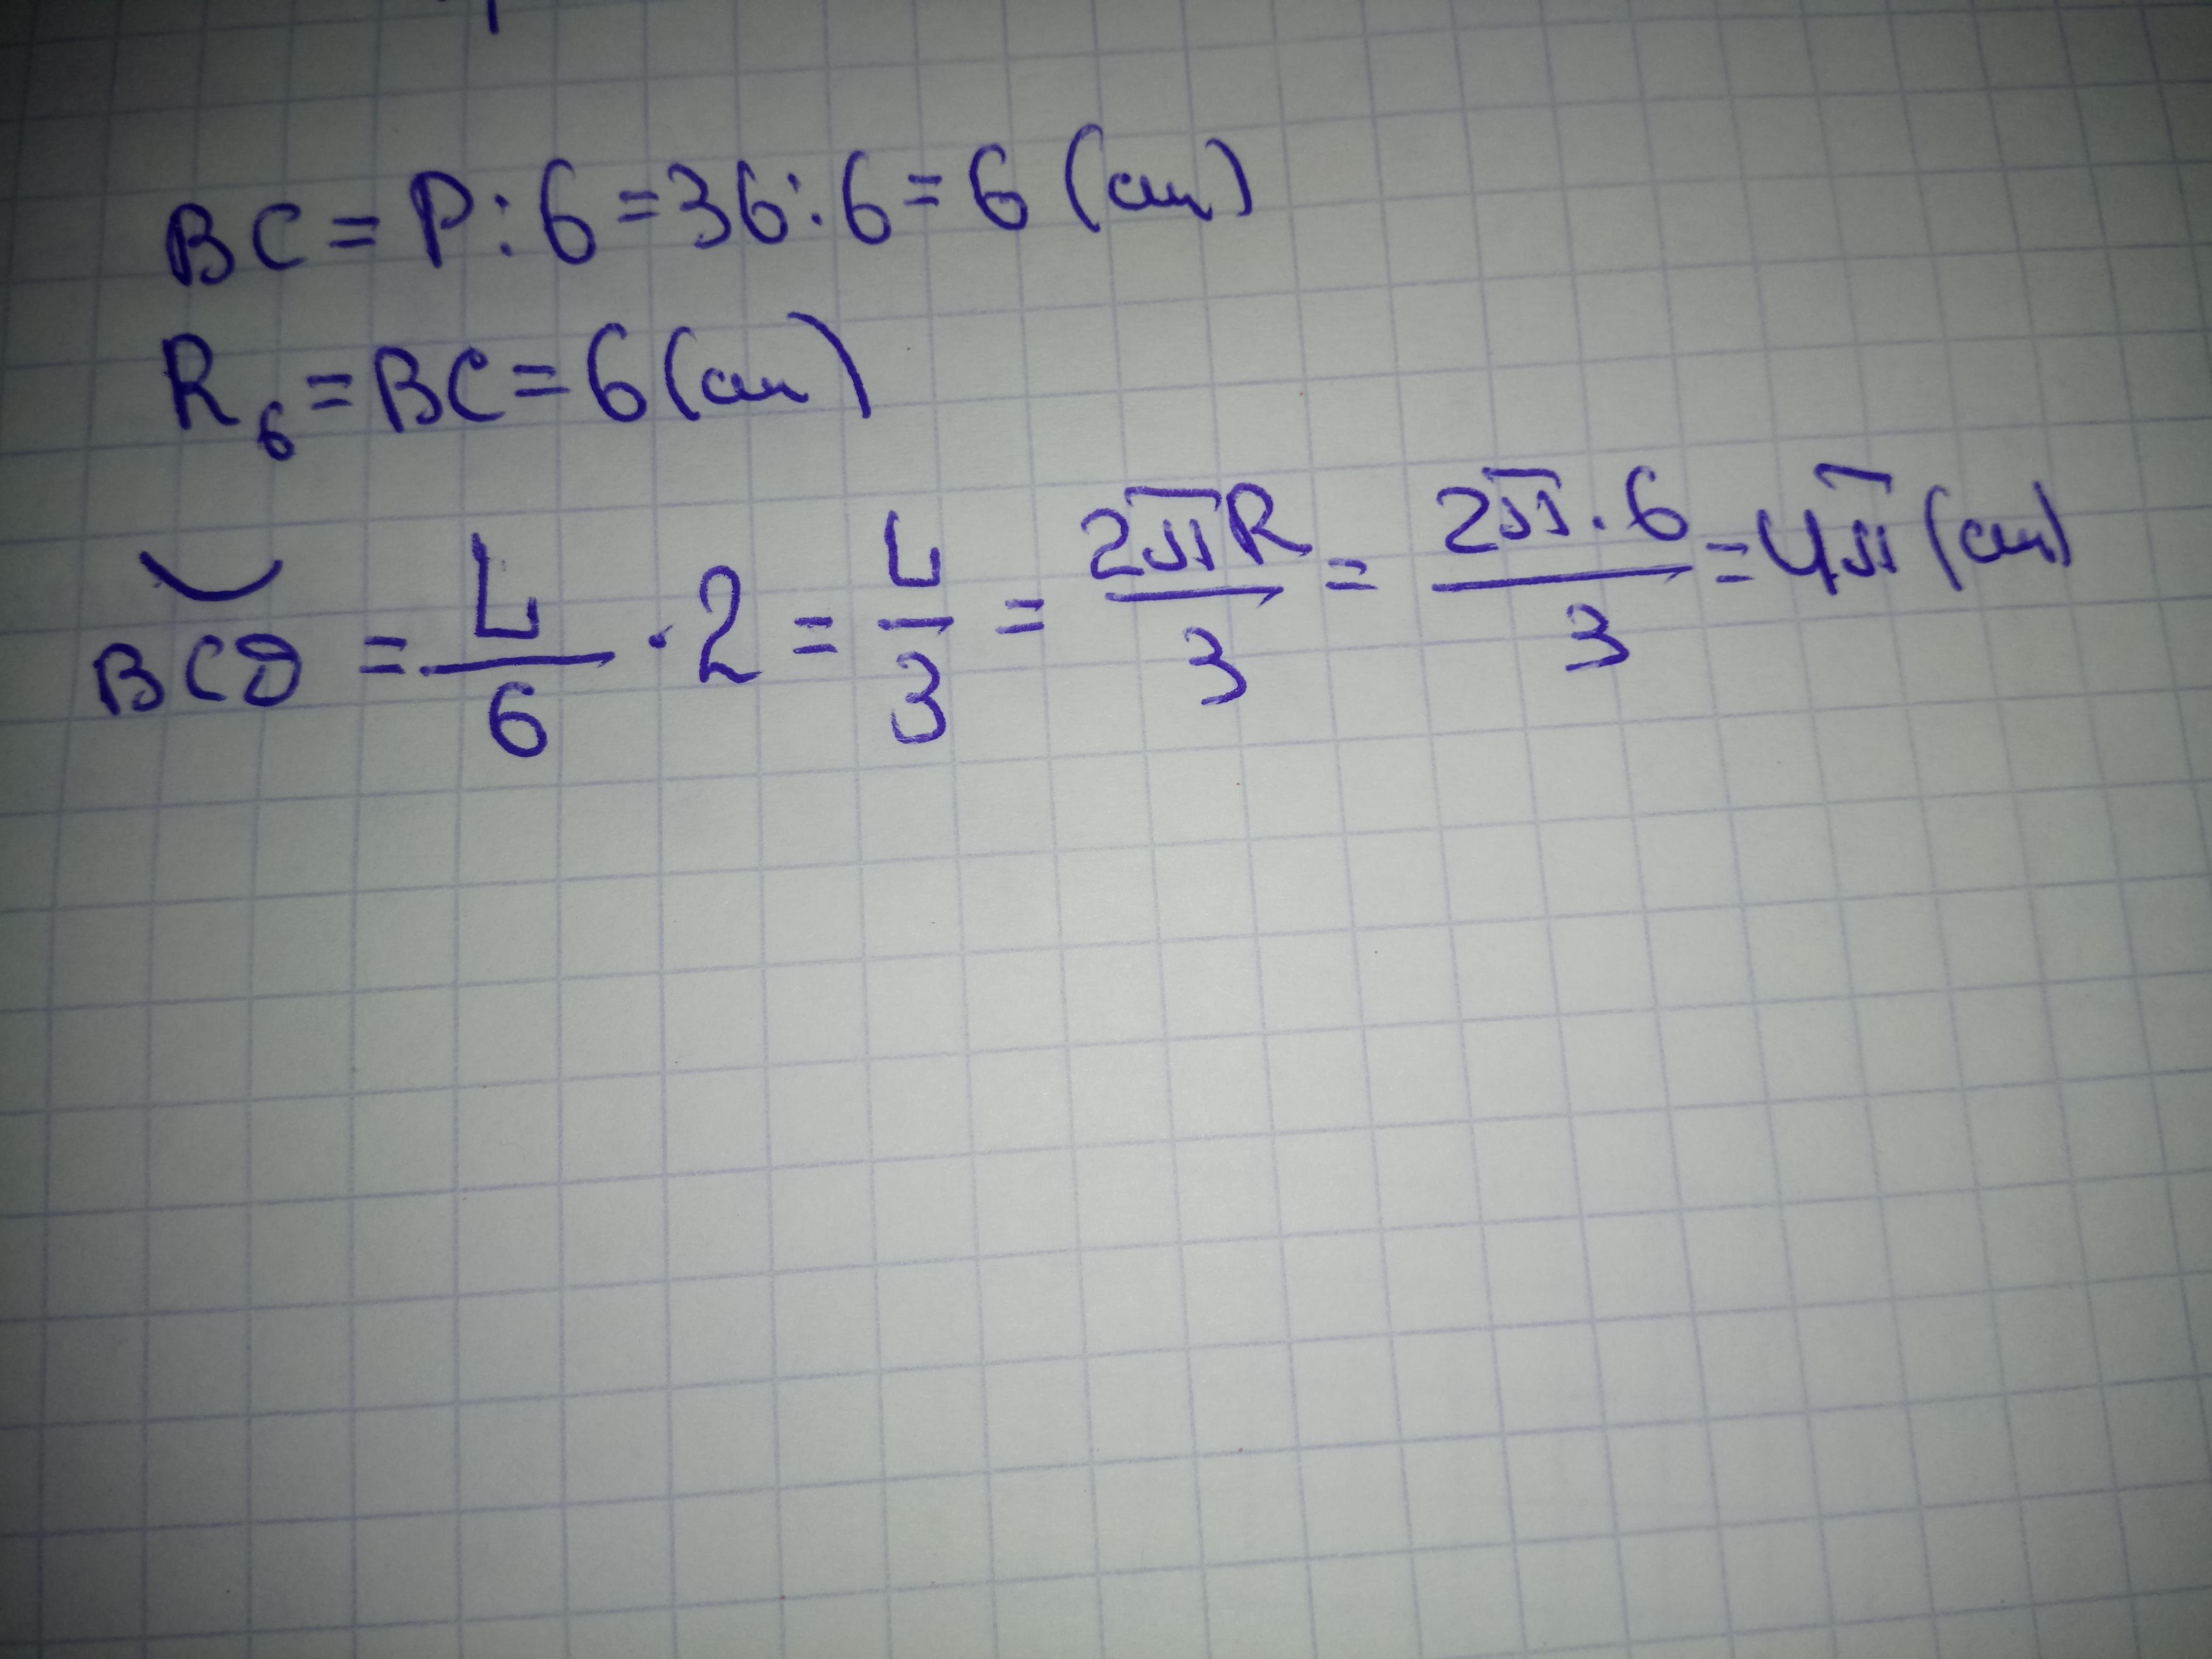 BC = P : 6 = 36 : 6 = 6 (см)
R₆ = BC = 6 (см)
◡BCD = L/6 · 2 = L/3 = 2πR/3 = 2π·6/3 = 4π (см)